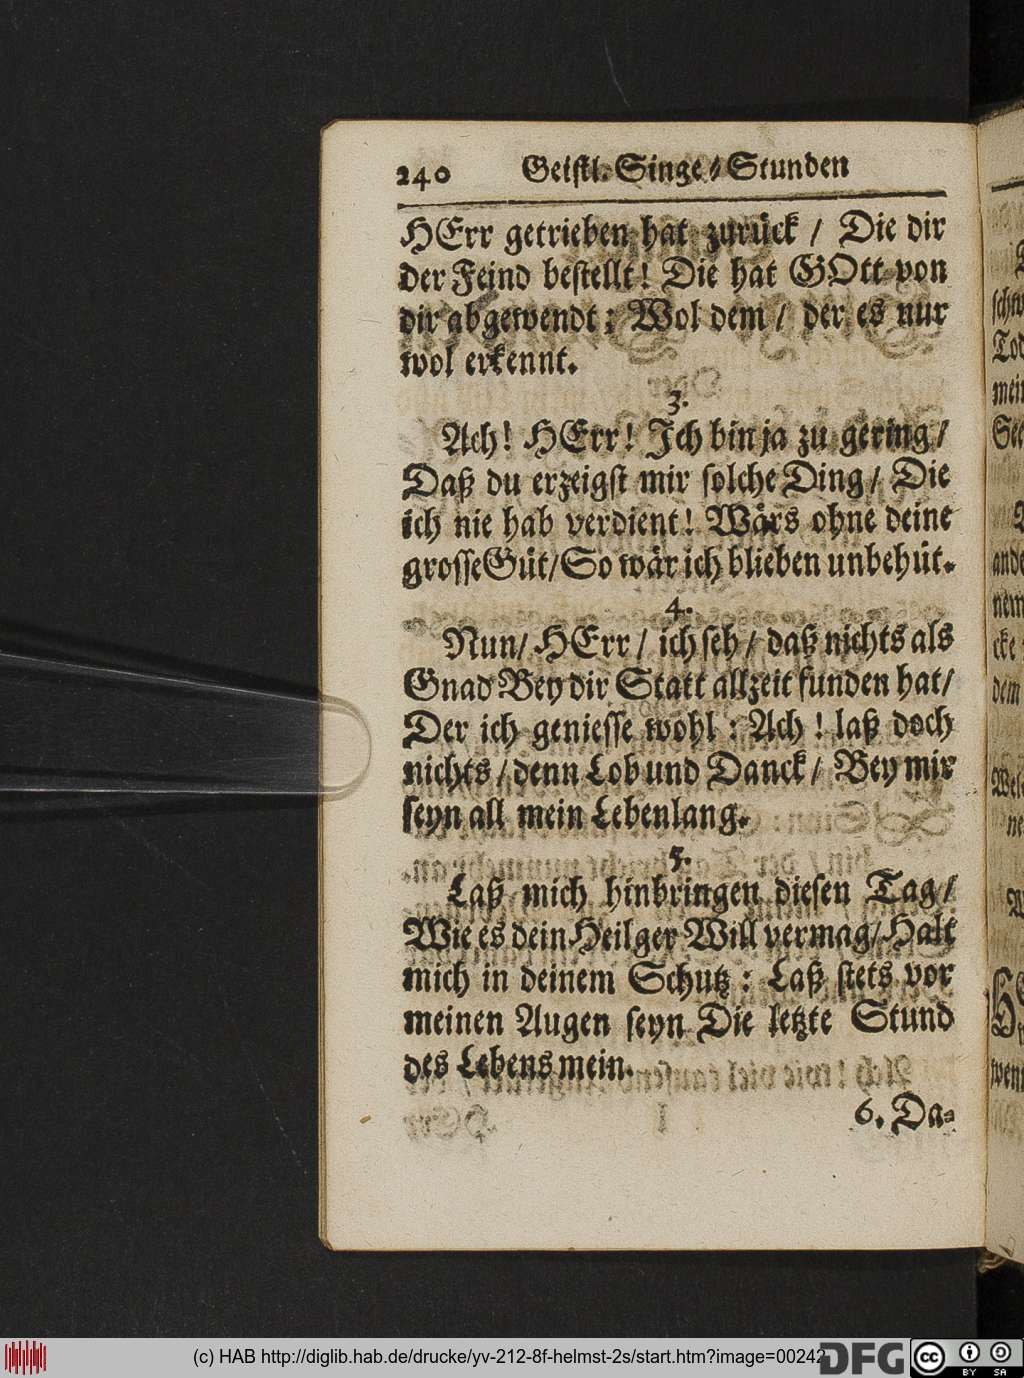 240 Geistl. Singe-Stunden
HErr getrieben hat zurück / Die dir
der Feind bestellt! Die hat GOtt von
dir abgewendt: Wol dem / der es nur
wol erkennt.
3.
Ach! HErr! Ich bin ja zu gering /
Daß du erzeigst mir solche Ding / Die
ich nie hab verdient! Wärs ohne deine
grosse Güt / So wär ich blieben unbehüt.
4.
Nun / HErr / ich seh / daß nichts als
Gnad Bey dir Statt allzeit funden hat /
Der ich geniesse wohl: Ach! laß doch
nichts / denn Lob und Danck / Bey mir
seyn all mein Lebenlang.
5.
Laß mich hinbringen diesen Tag /
Wie es dein Heilger Will vermag / Halt
mich in deinem Schutz: Laß stets vor
meinen Augen seyn Die letzte Stund
des Lebens mein.
6. Da-
(c) HAB http://diglib.hab.de/drucke/yv-212-8f-helmst-2s/start.htm?image=00242
DFG
cc BY SA